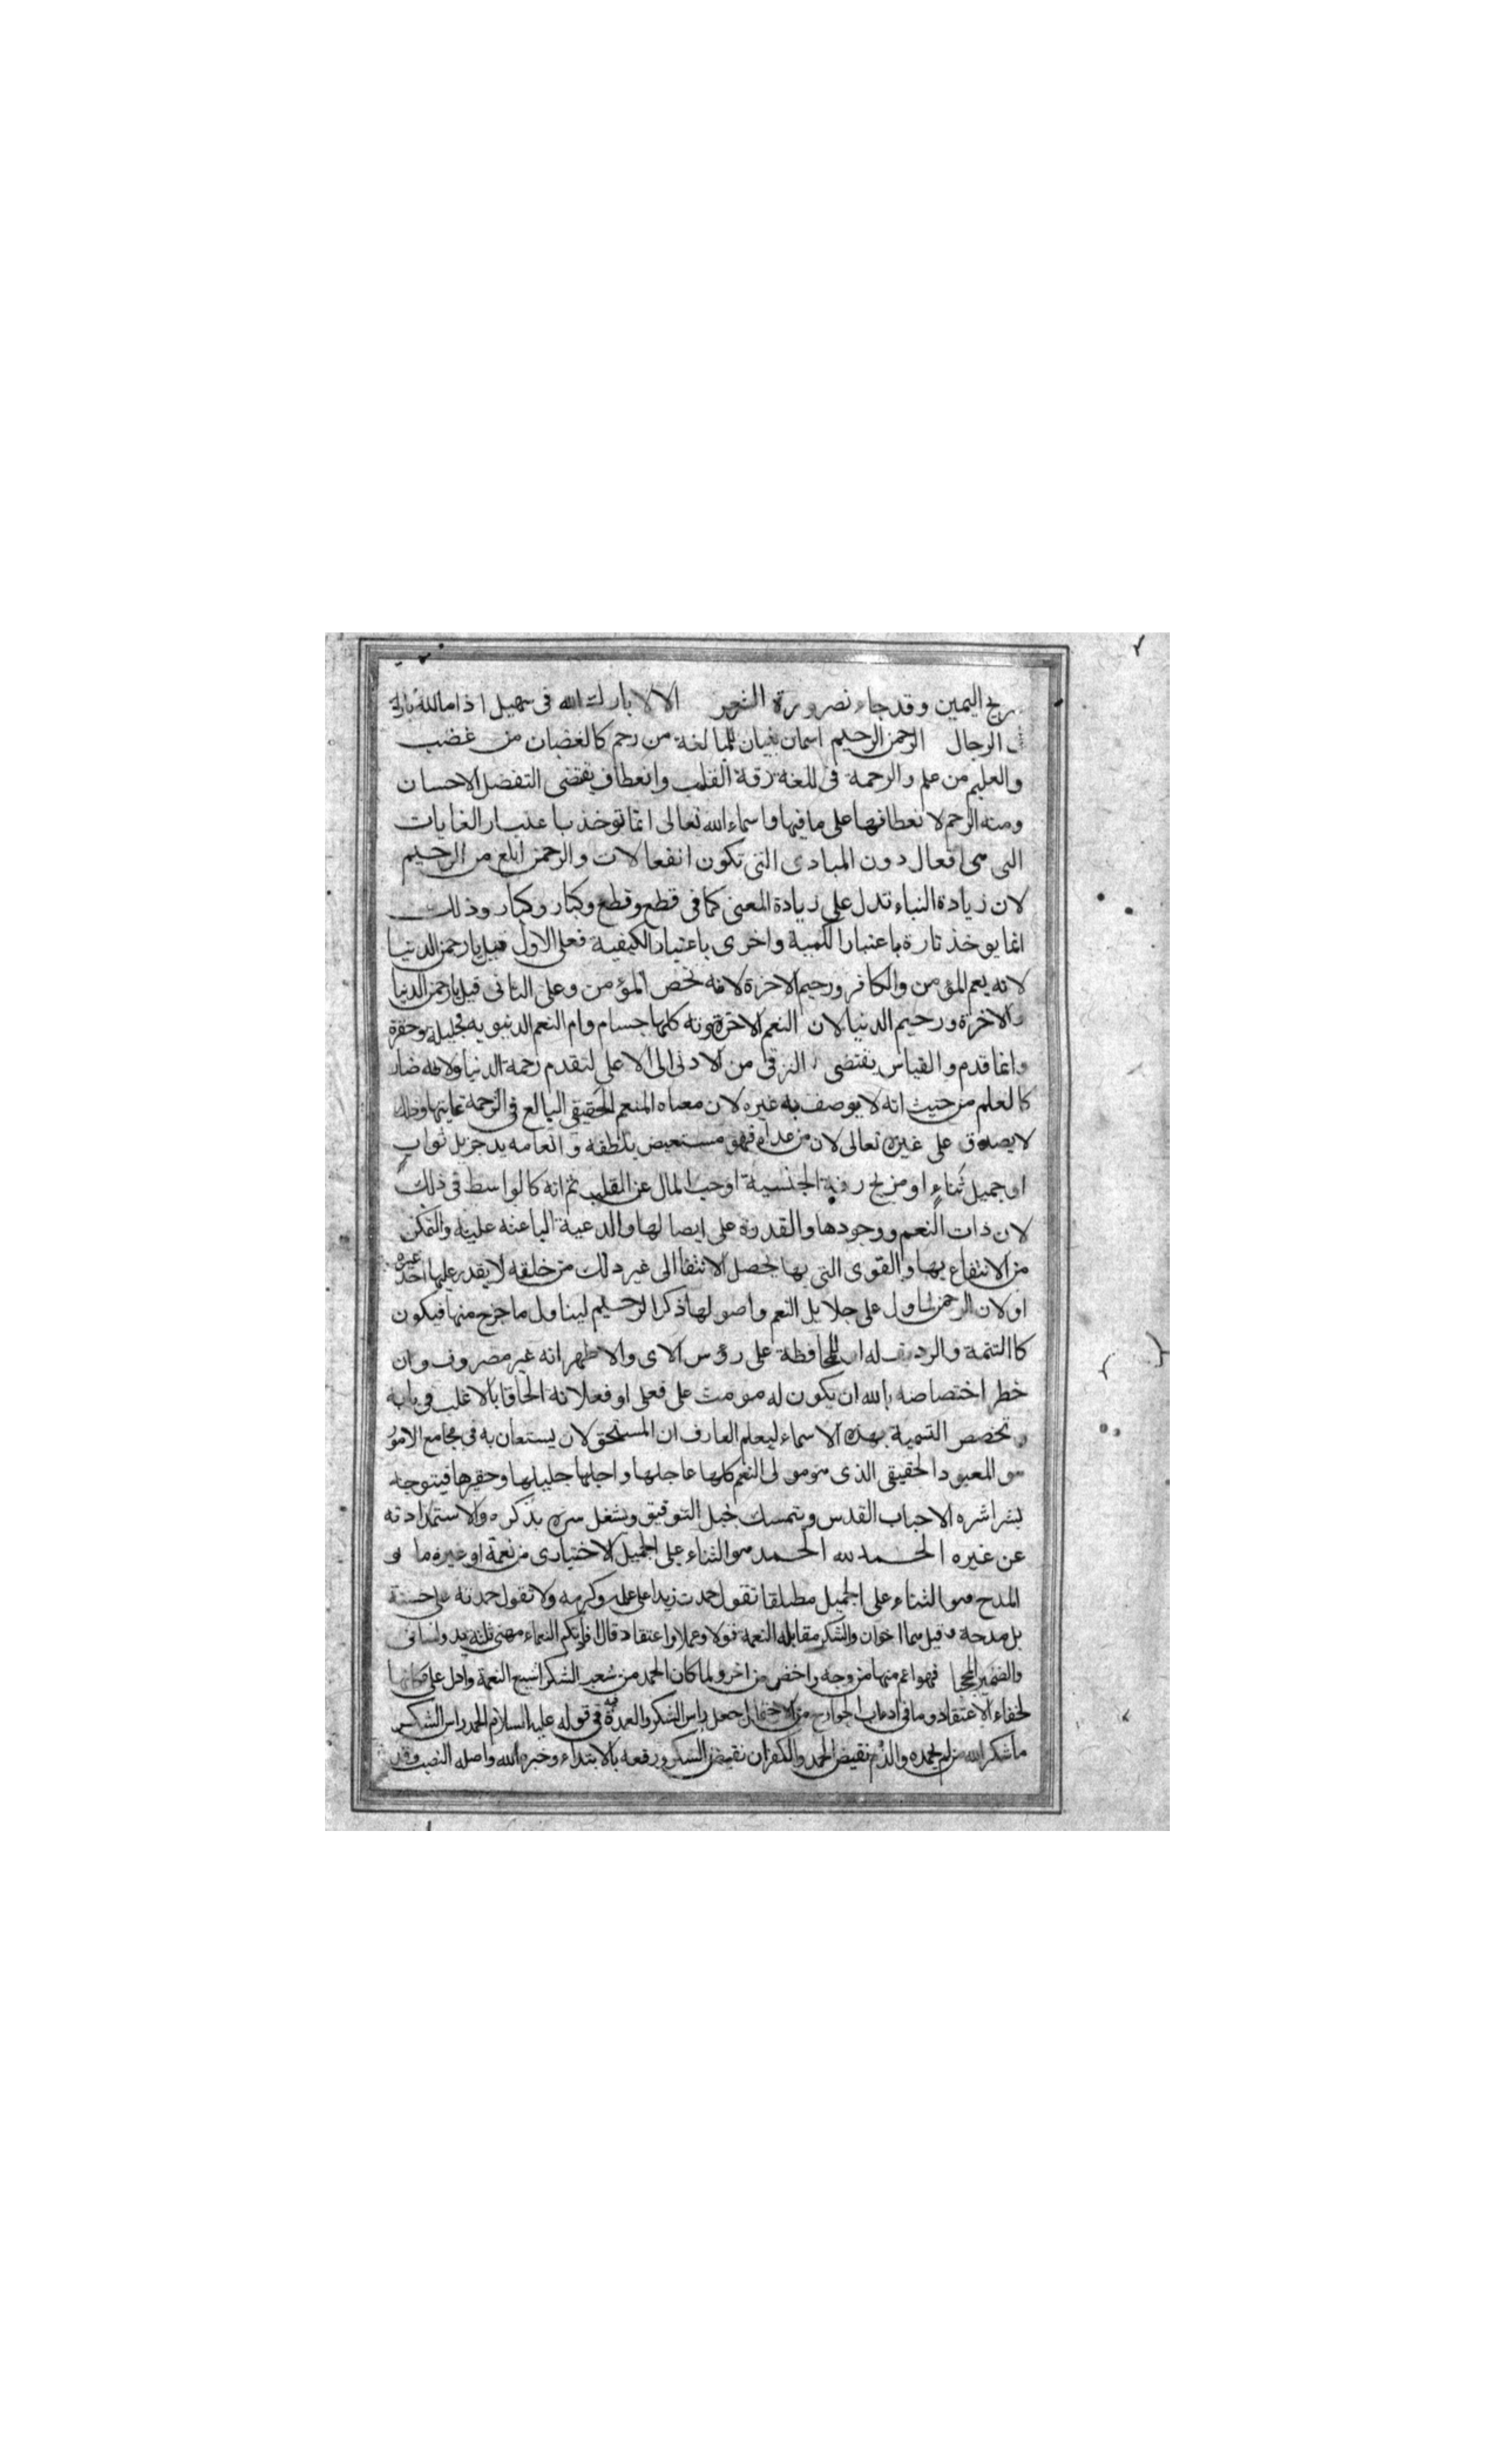 صريح اليمين وقد جاء لضرورة الشعر الا لا بارك الله فى سهيل اذا ما الله بارك
فى الرجال الرحمن الرحيم اسمان بنيان للمبالغة من رحم كالغضبان من غضب
والعليم من علم والرحمة فى للغة رقة القلب وانعطاف يقتضى التفضل الاحسان
ومنه الرحم لانعطافها على ما فيها واسماء الله تعالى انما توخذ باعتبار الغايات
التى هى افعال دون المبادى التى تكون انفعالات والرحمن ابلغ من الرحيم
لان زيادة البناء تدل على زيادة المعنى كما فى قطع وقطع وكبار وكبار وذلك
انما يوخذ تارة باعتبار الكمية واخرى باعتبار الكيفية فعلى الاول قيل يا رحمن الدنيا
لانه يعم المؤمن والكافر ورحيم الاخرة لانه يخص المؤمن وعلى الثانى قيل يا رحمن الدنيا
والاخرة ورحيم الدنيا لان النعم الاخروية كلها جسام وام النعم الدنيويه فجليلة وحقرة
وانما قدم والقياس يقتضى الترقى من الادنى الى الاعلى لتقدم رحمة الدنيا ولانه صار
كالعلم من حيث انه لا يوصف به غيره لان معناه المنعم الحقيقى البالغ فى الرحمة غايتها وذلك
لا يصدق على غيره تعالى لان من عداه فهو مستعيض بلطفه وانعامه يد جزيل ثواب
او جميل ثناء او مزيح رقة الجنسية اوحب المال عن القلب ثم انه كالواسط فى ذلك
لان ذات النعم ووجودها والقدرة على ايصالها والدعية الباعثه عليه والتمكن
من الانتفاع بها والقوى التى بها يحصل الانتفا الى غير ذلك من خلقه لا يقدر عليها احد غيره
او لان الرحمن لما ول على جلايل النعم واصولها ذكر الرحيم ليناول ما خرج منها فيكون
كاالتتمة والرديف له او للمحافظة على رؤس الاى والاظهر انه غير مصروف وان
خطر اختصاصه بالله ان يكون له مومث على فعلى او فعلانة الحاقا بالاغلب فى بابه
وتخصص التسمية بهذه الاسماء ليعلم العارف ان المستحق لان يستعان به فى مجامع الامور
هو المعبود الحقيقى الذى هو مولى النعم كلها عاجلها واجلها جليلها وحقيرها فيتوجه
بشراشره الا جباب القدس ويتمسك بحبل التوقيق ويشغل سره بذكره والاستمداد ته
عن غيره الحمد لله الحمد هو الثناء على الجميل الاختيارى من نعمة او غيره ما و
المدح هو الثناء على الجميل مطلقا تقول حمدت زيدا على علمه وكرمه ولا تقول حمدته على حسنة
بل مدحه وقيل هما اخوان والشكر مقابله النعمه قولا وعملا واعتقاد قال افادتكم النعماء منى ثلثه يدى ولسانى
والضمير المحجبا فهو اعم منها من وجه واخص من اخر ولما كان الحمد من شعب الشكر اشيع النعمة وادل على مكانها
لخفاء الاعتقاد وما فى اداب الجوارح من الاحتمال جعل راس الشكر والعمدة فيه فى قوله عليه السلام الحمد راس الشكر
ما شكر الله من لم يحمده والذم نقيض الحمد والكفران نقيض الشكر ورفعه بالابتداء وخبره لله واصله النصب وقد